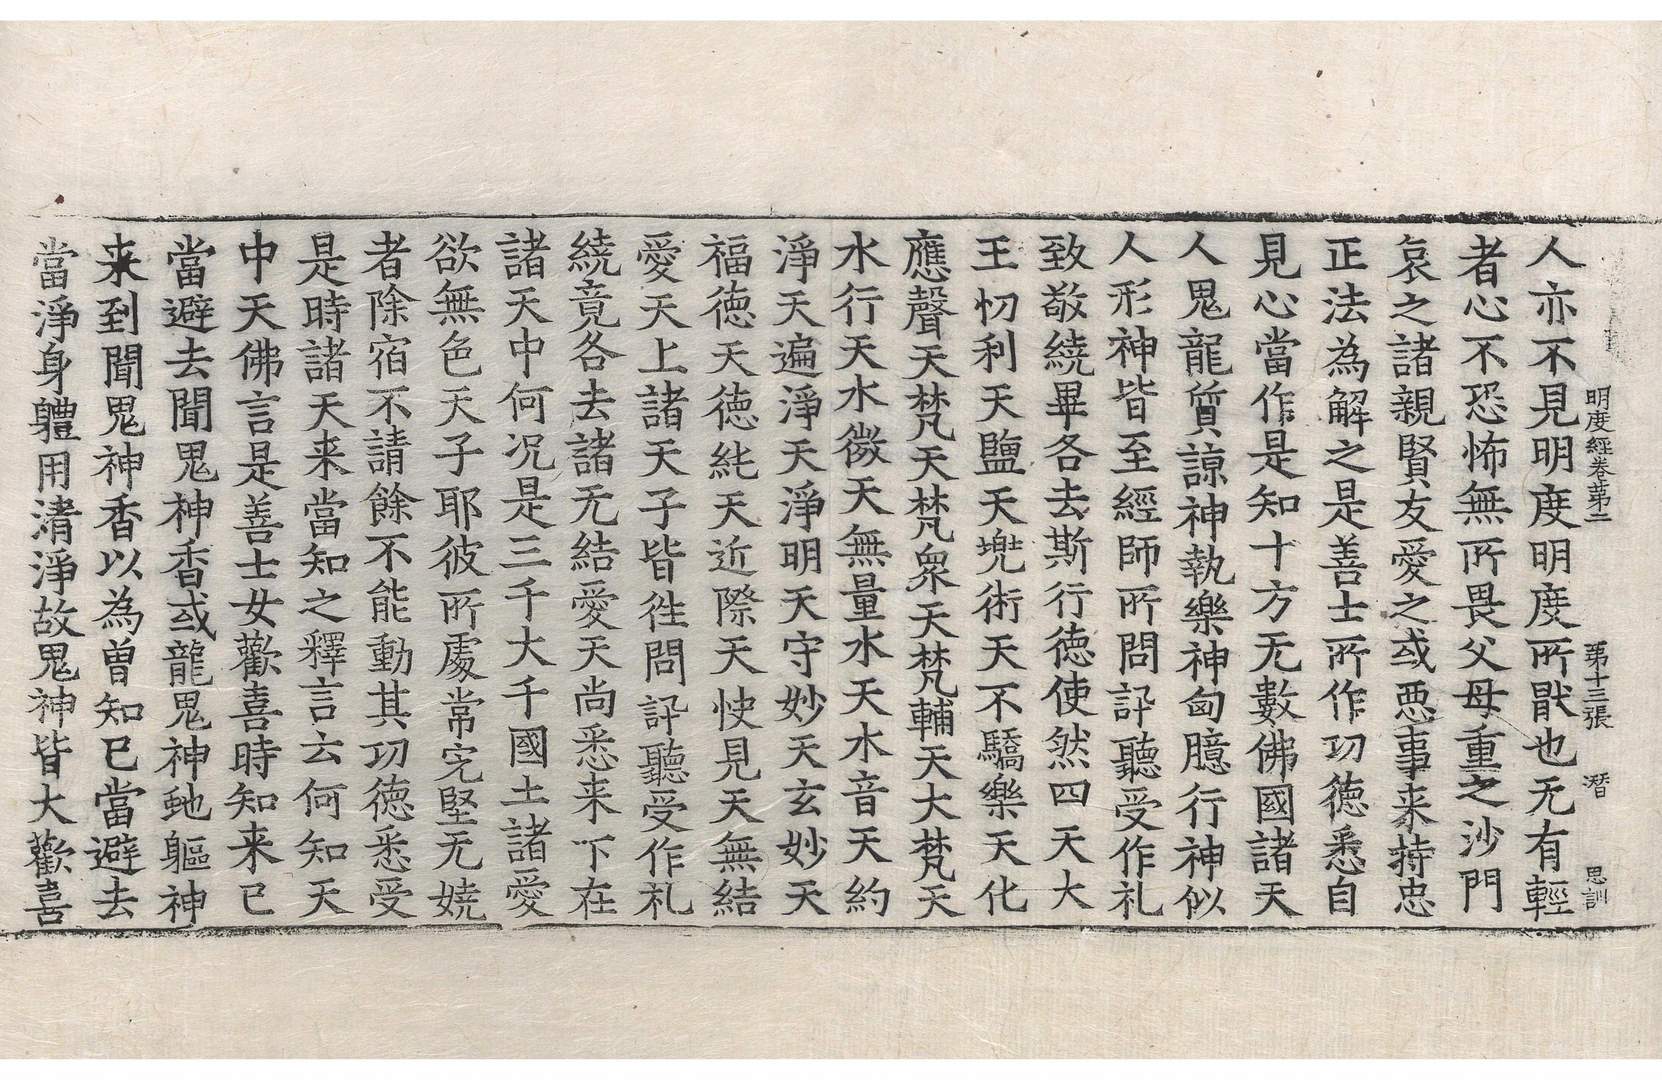 明度經卷第二 第十三張 潛 思訓
人亦不見明度明度所猒也无有輕
者心不恐怖無所畏父母重之沙門
哀之諸親賢友愛之或惡事来持忠
正法為解之是善士所作功德悉自
見心當作是知十方无數佛國諸天
人鬼龍質諒神執樂神匈臆行神似
人形神皆至經師所問訊聽受作礼
致敬繞畢各去斯行德使然四天大
王忉利天鹽天兠術天不驕樂天化
應聲天梵天梵衆天梵輔天大梵天
水行天水微天無量水天水音天約
淨天遍淨天淨明天守妙天玄妙天
福德天德純天近際天快見天無結
愛天上諸天子皆徃問訊聽受作礼
繞竟各去諸无結愛天尚悉来下在
諸天中何况是三千大千國土諸愛
欲無色天子耶彼所處常完堅无娆
者除宿不請餘不能動其功德悉受
是時諸天来當知之釋言云何知天
中天佛言是善士女歡喜時知来已
當避去聞鬼神香或龍鬼神虵軀神
来到聞鬼神香以為曾知已當避去
當淨身軆用清淨故鬼神皆大歡喜